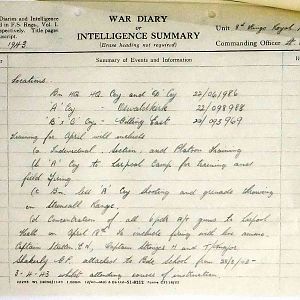 Diaries and Intelligence
in F.S. Regs., Vol. I
respectively. Title pages
manuscript.
1943
WAR DIARY
OF
INTELLIGENCE SUMMARY
(Erase heading not required)
Unit 8th Kings Royal
Commanding Officer Lt
Summary of Events and Information
Locations.
Bn HQ HQ Coy and D Coy 22/061986
'A' Coy - Oswaldkirk 22/098988
'B' & 'C' Coy - Gilling East 22/093969
Training for April will include
(a) Individual, Section, and Platoon training
(b) 'A' Coy to Larpool Camp for training and
field firing
(c) Bn less 'A' Coy shooting and grenade throwing
on Strensall Range.
(d) Concentration of all 6 pdr A/T guns to Larpool
Hall on April 18th to include firing with live ammo.
Captain Captain and T/Major
attached to School from
3-4-43 whilst attending course of instruction